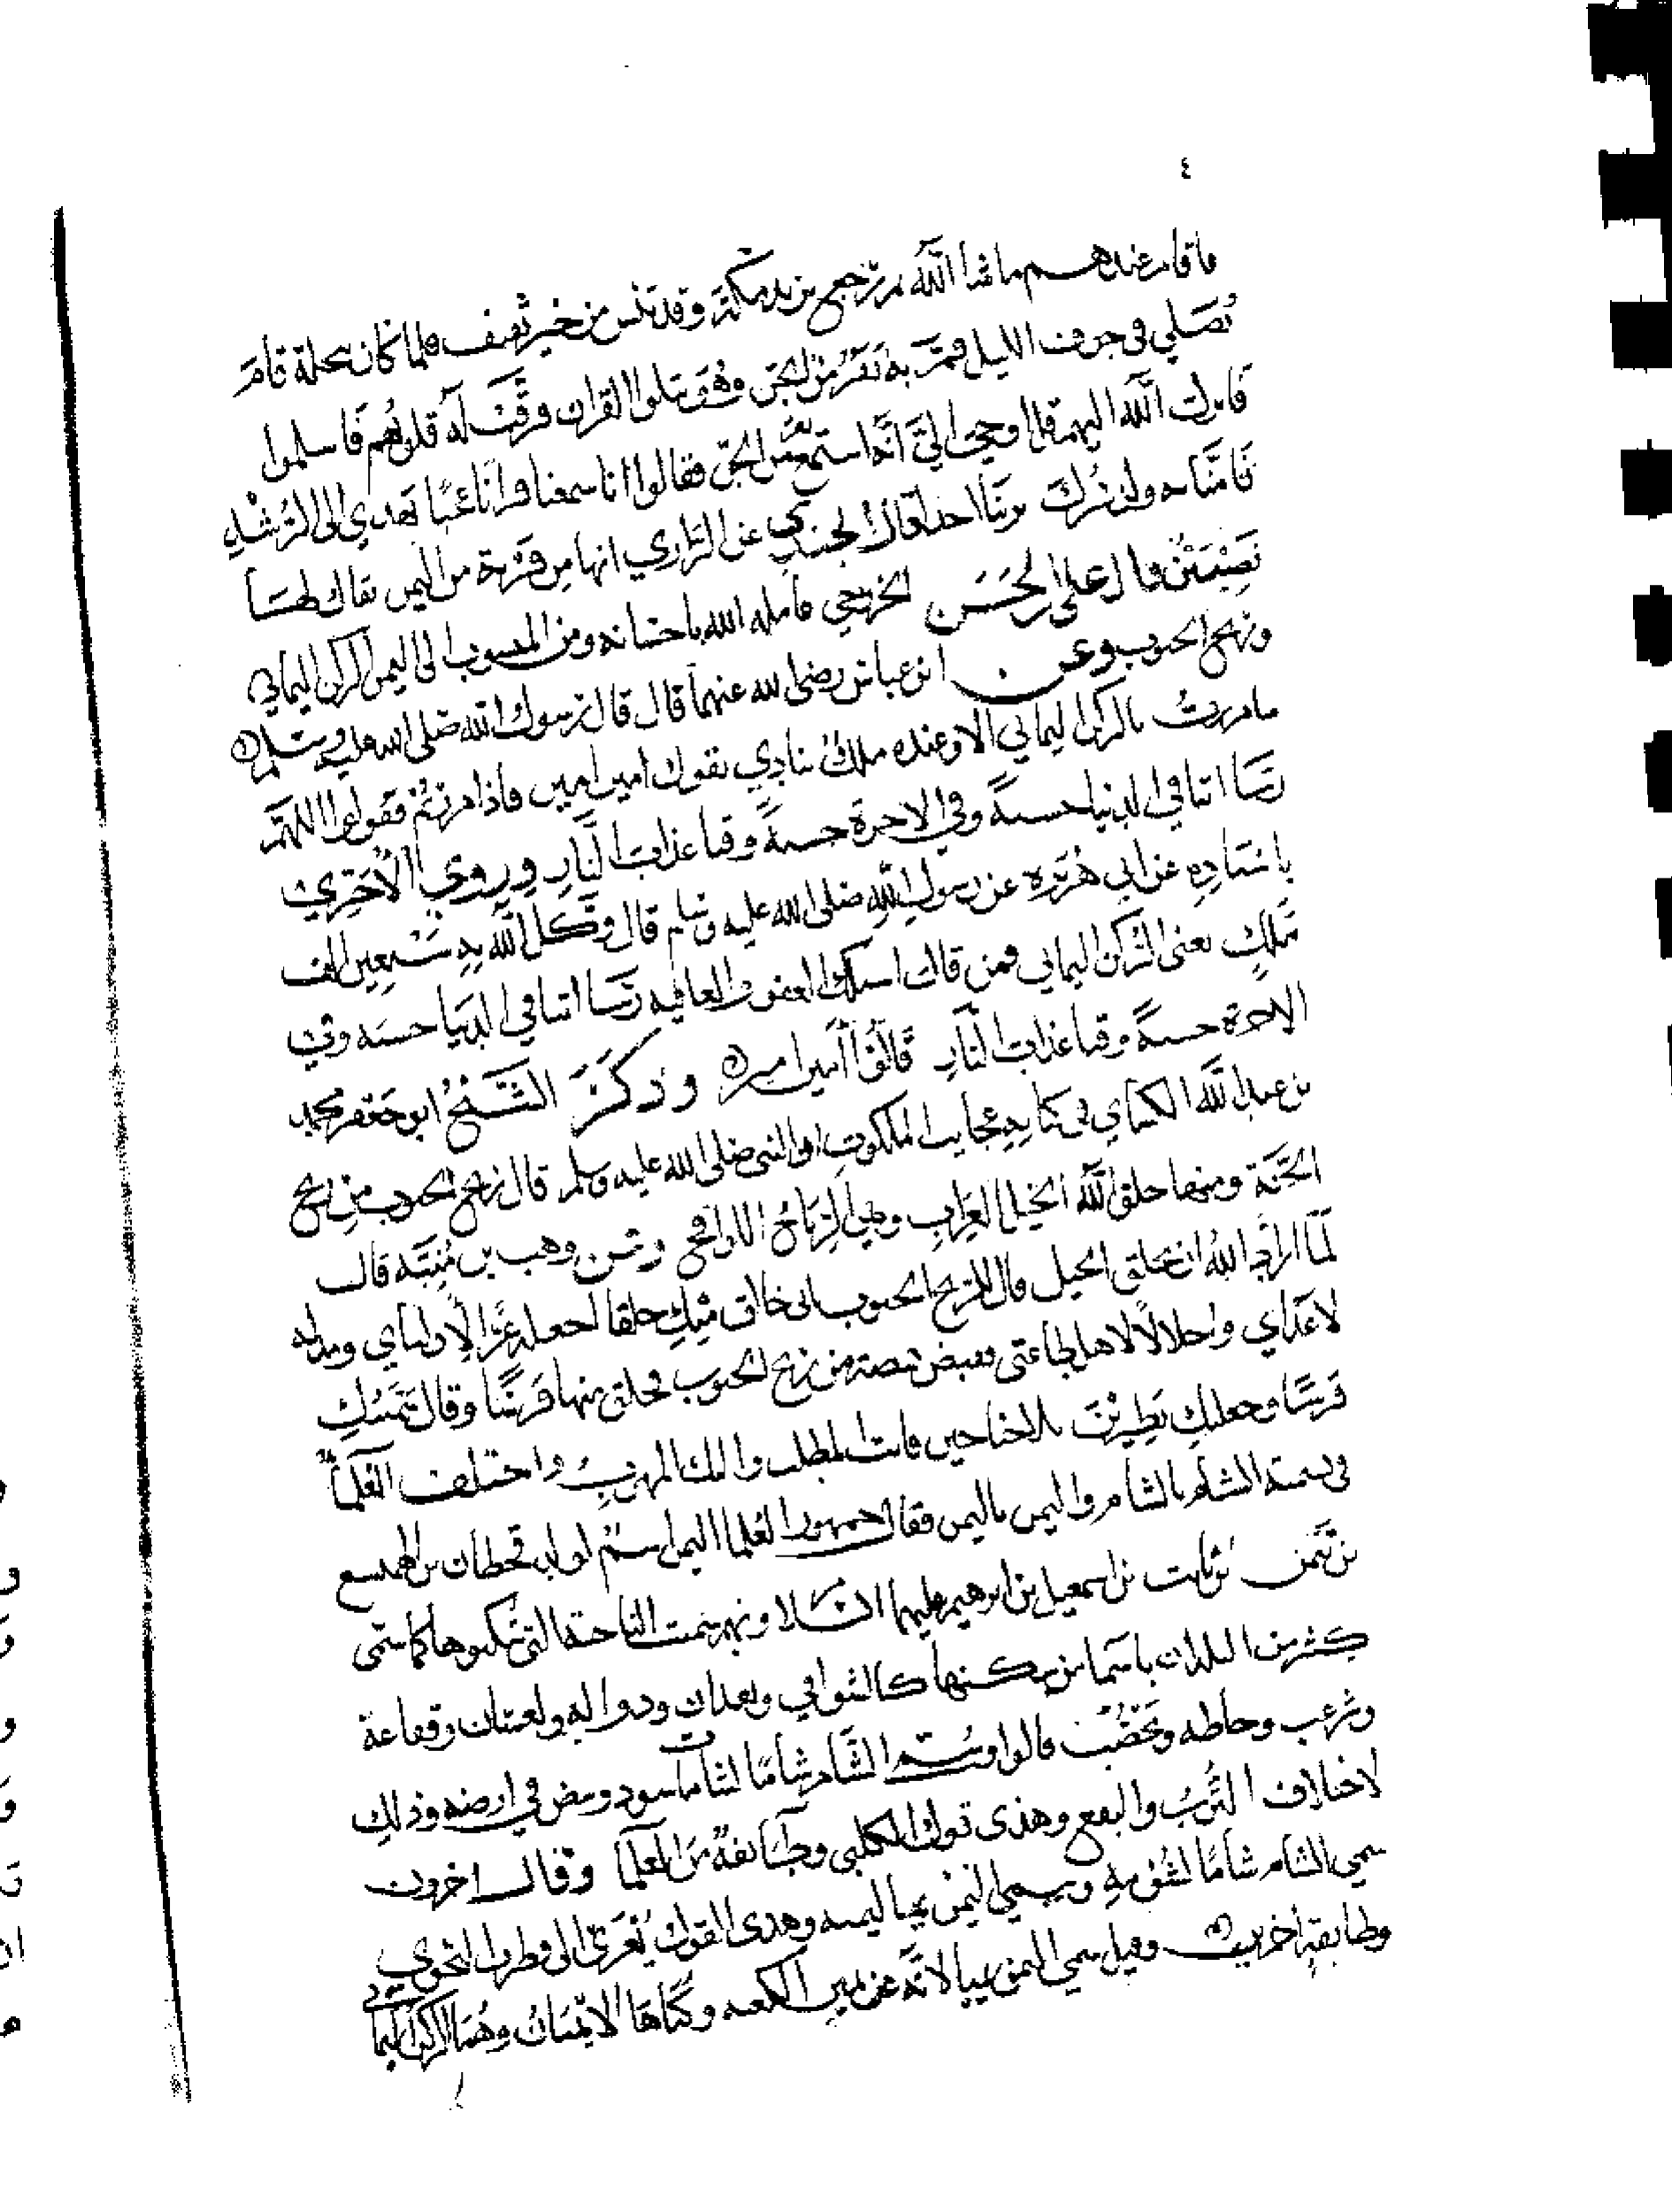 ٤
فاقام عندهم ما شا الله ثم رجع يريد مكة وقد يئس من خير ثقيف فلما كان بنخلة قام
يصلي في جوف الليل فمر به نفر من الجن وهو يتلوا القران فرقت له قلوبهم فاسلموا
فانزل الله اليهم قل اوحي الي انه استمع نفر من الجن فقالوا انا سمعنا قرانا عجبا يهدي الى الرشد
فامنا به ولن نشرك بربنا احدا قال الجندي عن الرازي انها من قرية من اليمن يقال لها
نصيبين قال علي بن الحسن الخزرجي عامله الله باحسانه ومن المنسوب الى اليمن الركن اليماني
وريح الجنوب وعن ابن عباس رضي الله عنهما قال قال رسول الله صلى الله عليه وسلم
ما مررت بالركن اليماني الا وعنده ملك ينادي يقول امين امين فاذا مررتم فقولوا اللهم
ربنا اتنا في الدنيا حسنة وفي الاخرة حسنة وقنا عذاب النار وروي الاجري
باسناده عن ابي هريره عن رسول الله صلى الله عليه وسلم قال وكل الله به سبعين الف
ملك يعنى الركن اليماني فمن قال اسلك العفو والعافيه ربنا اتنا في الدنيا حسنه وفي
الاخرة حسنة وقنا عذاب النار قالوا امين امين وذكر الشيخ ابو جعفر محمد
بن عبد الله الكسائي في كتابه عجايب الملكوت ان النبي صلى الله عليه وسلم قال ريح الجنوب من ريح
الجنة ومنها خلق الله الخيل العراب وهي الرياح اللواقح وعن وهب بن منبه قال
لما اراد الله ان يخلق الخيل قال للريح الجنوب اني خالق منك خلقا اجعله عزا لاوليائي ومذله
لاعدائي واجلالا لاهل طاعتي فقبض قبضة من ريح الجنوب فخلق منها فرسا وقال سميتك
فرسا وجعلتك تطيرين بلا جناحين فانت للطلب وانت للهرب واختلف العلما
في تسمية الشام بالشام واليمن باليمن فقال جمهور العلما اليمن اسم لولد قحطان بن الهميسع
بن تيمن بن ثابت بن اسمعيل بن ابرهيم عليهما السلام وبهم سميت الناحية التي سكنوها كما سمى
كثير من البلدان باسما من يسكنها كالشوافي وبعدان ودواله ولعسان وقفاعة
وشرعب وحاطه ويحضب قالوا وسمي الشام شاما لشامات سود وبيض في ارضه وذلك
لاختلاف الترب والبقع وهذى قول الكلبي وطائفة من العلما وقال اخرون
سمي الشام شاما لشومه وسمي اليمن يمنا ليمنه وهذى القول يعزى الى قطرب النحوي
وطايفة اخرين وقيل سمي اليمن يمنا لانه عن يمين الكعبه وركناها الايمنان وهما الركن اليماني